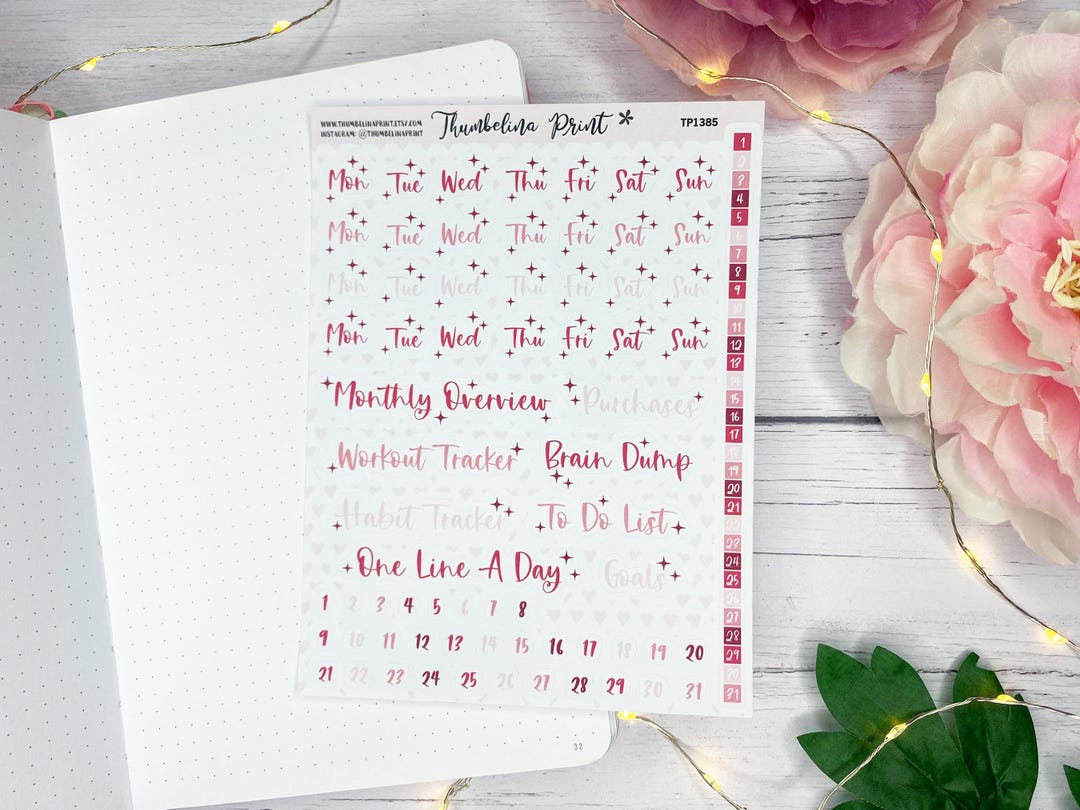 WWW.THUMBELINAPRINT.ETSY.COM
INSTAGRAM: @THUMBELINAPRINT
Thumbelina Print
TP1385
Mon Tue Wed Thu Fri Sat Sun
Mon Tue Wed Thu Fri Sat Sun
Mon Tue Wed Thu Fri Sat Sun
Mon Tue Wed Thu Fri Sat Sun
Monthly Overview Purchases
Workout Tracker Brain Dump
Habit Tracker To Do List
One Line A Day Goals
1 2 3 4 5 6 7 8
9 10 11 12 13 14 15 16 17 18 19 20
21 22 23 24 25 26 27 28 29 30 31
1
2
3
4
5
6
7
8
9
10
11
12
13
14
15
16
17
18
19
20
21
22
23
24
25
26
27
28
29
30
31
32